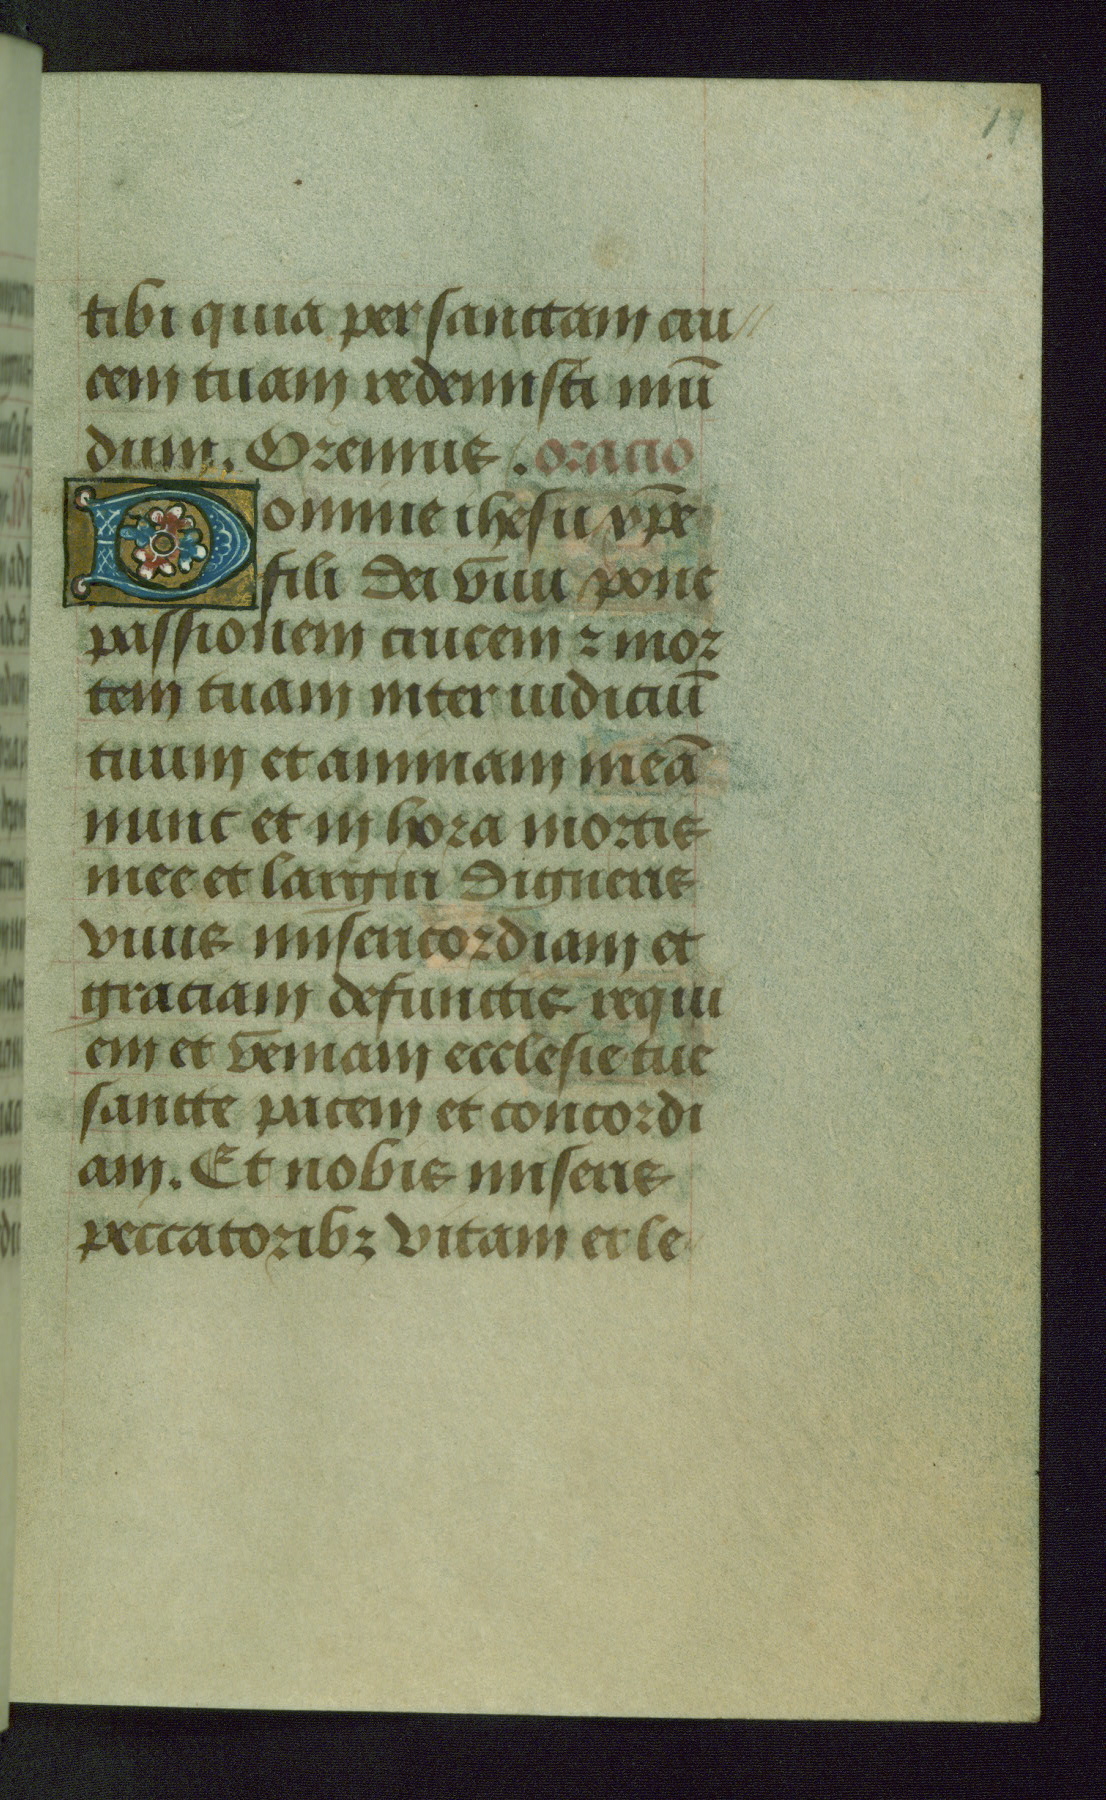 19
tibi quia per sanctam cru//
cem tuam redemisti mū
dum. Oremus. oracio
Domine ihesu xp̄e
fili dei viui pone
passionem crucem ⁊ mor
tem tuam inter iudiciū
tuum et animam meā
nunc et in hora mortis
mee et largiri digneris
viuis misericordiam et
graciam defunctis requi
em et veniam ecclesie tue
sancte pacem et concordi
am. Et nobis miseris
peccatoribꝫ vitam et le